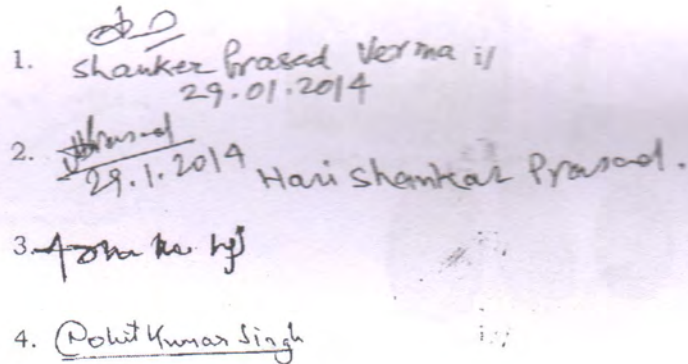 1. Shanker Prasad Verma
29.01.2014
2. Prasad
29.1.2014 Hari Shankar Prasad.
3.
4. Rohit Kumar Singh